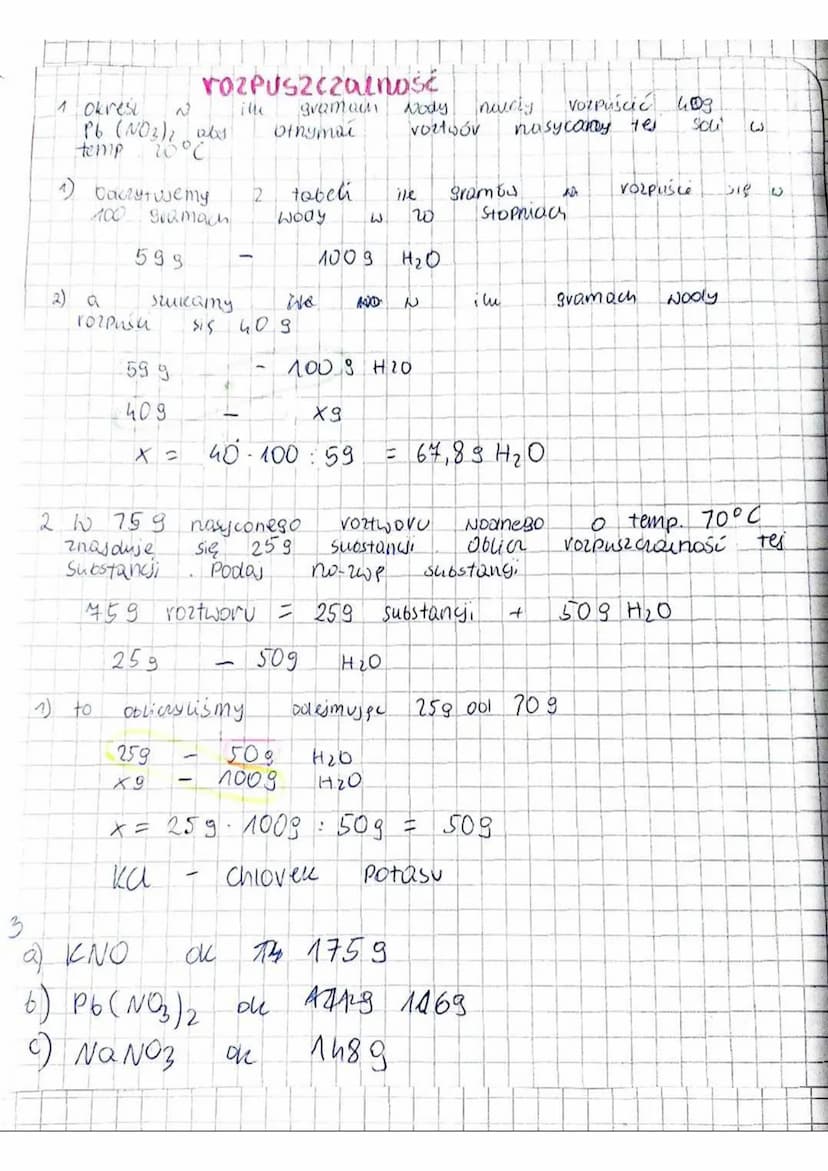 rozpuszczalność
1 określ w ilu gramach wody należy rozpuścić 40g
Pb(NO3)2 aby otrzymać roztwór nasycony tej soli w
temp 20°C
1) odczytujemy z tabeli ile gramów rozpuści się w
100 gramach wody w 20 stopniach
59g - 100g H2O
2) a szukamy w ilu gramach wody
rozpuści się 40g
59g - 100g H2O
40g - xg
x = 40·100:59 = 67,8g H2O
2 W 75g nasyconego roztworu wodnego o temp. 70°C
znajduje się 25g substancji. Oblicz rozpuszczalność tej
substancji. Podaj nazwę substancji
75g roztworu = 25g substancji + 50g H2O
25g - 50g H2O
1) to obliczyliśmy odejmując 25g od 70g
25g - 50g H2O
xg - 100g H2O
x = 25g·100g:50g = 50g
KCl - chlorek potasu
3
a) KNO ok 175g
b) Pb(NO3)2 ok 116g
c) NaNO3 ok 148g